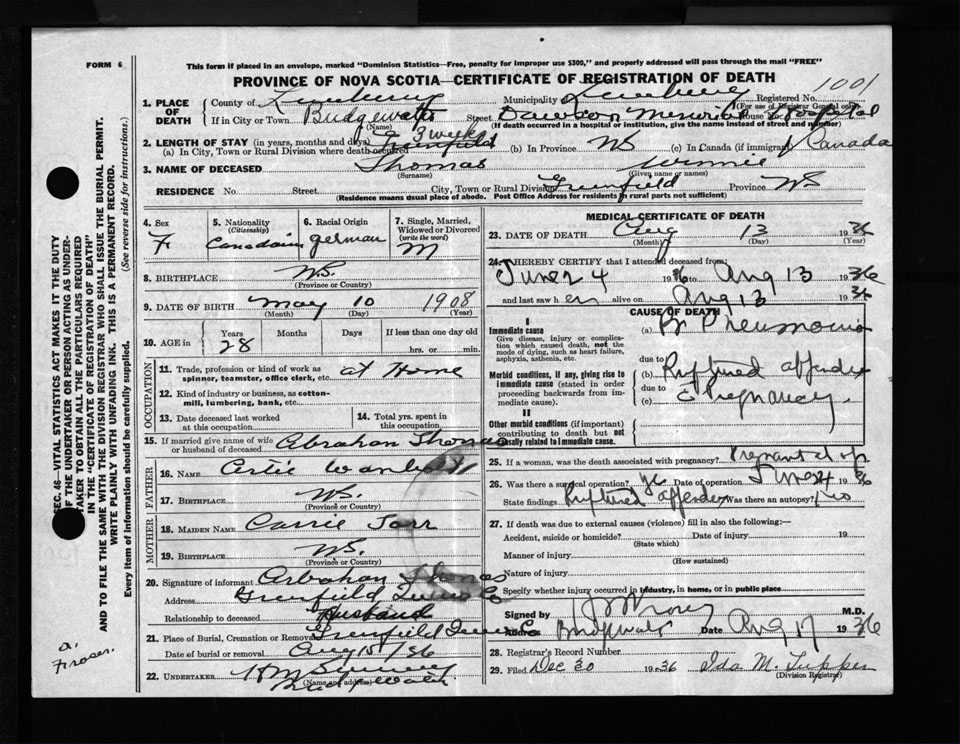 FORM 6
This form if placed in an envelope, marked "Dominion Statistics—Free, penalty for improper use $300," and properly addressed will pass through the mail "FREE"
PROVINCE OF NOVA SCOTIA—CERTIFICATE OF REGISTRATION OF DEATH
1001
1. PLACE OF DEATH County of Lunenburg Municipality Lunenburg Registered No.
(For use of Registrar General only)
If in City or Town Bridgewater Street Dawson Memorial Hospital
(Name) (If death occurred in a hospital or institution, give the name instead of street and number)
3 weeks
2. LENGTH OF STAY (in years, months and days)
(a) In City, Town or Rural Division where death occurred Greenfield (b) In Province NS (c) In Canada (if immigrant) Canada
3. NAME OF DECEASED Thomas Winnie
(Surname) (Given name or names)
RESIDENCE No. Street City, Town or Rural Division Greenfield Province NS
(Residence means usual place of abode. Post Office Address for residents in rural parts not sufficient)
4. Sex F
5. Nationality (Citizenship) Canadain
6. Racial Origin german
7. Single, Married, Widowed or Divorced (write the word) M
8. BIRTHPLACE N.S.
(Province or Country)
9. DATE OF BIRTH May 10 1908
(Month) (Day) (Year)
10. AGE in Years Months Days If less than one day old
28 hrs. or min.
OCCUPATION
11. Trade, profession or kind of work as spinner, teamster, office clerk, etc. at Home
12. Kind of industry or business, as cotton-mill, lumbering, bank, etc.
13. Date deceased last worked at this occupation
14. Total yrs. spent in this occupation.
15. If married give name of wife or husband of deceased Abrahan Thomas
FATHER
16. NAME Artie
17. BIRTHPLACE N.S.
(Province or Country)
MOTHER
18. MAIDEN NAME Carrie
19. BIRTHPLACE N.S.
(Province or Country)
20. Signature of informant Arbahan Thomas
Address Greenfield Queens Co
Relationship to deceased Husband
21. Place of Burial, Cremation or Removal Greenfield Queens Co
Date of burial or removal Aug 15/36
22. UNDERTAKER
(Name and address) Bridgewater
MEDICAL CERTIFICATE OF DEATH
23. DATE OF DEATH Aug 13 1936
(Month) (Day) (Year)
24. I HEREBY CERTIFY that I attended deceased from:
June 24 1936 to Aug 13 1936
and last saw her alive on Aug 13 1936
CAUSE OF DEATH
I
Immediate cause
Give disease, injury or complication which caused death, not the mode of dying, such as heart failure, asphyxia, asthenia, etc.
(a) Br Pneumonia
due to
Morbid conditions, if any, giving rise to immediate cause (stated in order proceeding backwards from immediate cause).
(b) Ruptured appendix
due to
(c) c̄ Pregnancy.
II
Other morbid conditions (if important) contributing to death but not causally related to immediate cause.
25. If a woman, was the death associated with pregnancy? Pregnant at op
26. Was there a surgical operation? yes Date of operation June 24 1936
State findings Ruptured appendix Was there an autopsy? no
27. If death was due to external causes (violence) fill in also the following:—
Accident, suicide or homicide? Date of injury 19
(State which)
Manner of injury
(How sustained)
Nature of injury
Specify whether injury occurred in industry, in home, or in public place
Signed by M.D.
Address Bridgewater Date Aug 17 1936
28. Registrar's Record Number
29. Filed Dec 30 1936 Ida M. Tupper
(Division Registrar)
SEC. 46—VITAL STATISTICS ACT MAKES IT THE DUTY OF THE UNDERTAKER OR PERSON ACTING AS UNDERTAKER TO OBTAIN ALL THE PARTICULARS REQUIRED IN THE "CERTIFICATE OF REGISTRATION OF DEATH"
AND TO FILE THE SAME WITH THE DIVISION REGISTRAR WHO SHALL ISSUE THE BURIAL PERMIT.
WRITE PLAINLY WITH UNFADING INK. THIS IS A PERMANENT RECORD.
Every item of Information should be carefully supplied. (See reverse side for instructions.)
a. Fraser.